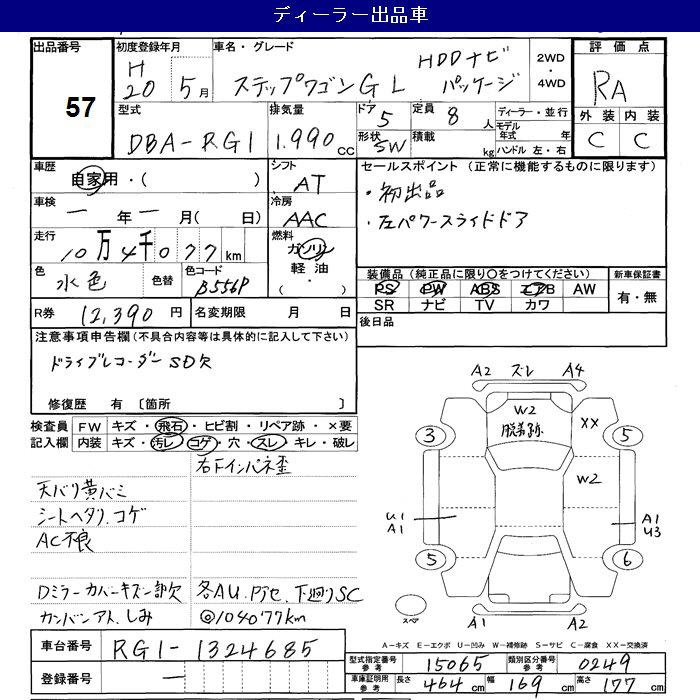 ディーラー出品車
出品番号 57
初度登録年月 H 20 5月
車名・グレード ステップワゴン G L HDDナビ パッケージ
2WD・4WD
評価点 RA
外装 内装
C C
型式 DBA-RG1
排気量 1.990 cc
ドア 5
形状 SW
定員 8 人
積載 kg
ディーラー・並行
モデル年式 年
ハンドル 左・右
車歴 自家用・( )
シフト AT
セールスポイント (正常に機能するものに限ります)
・初出品
・左パワースライドドア
車検 一 年 一 月 ( 日)
冷房 AAC
走行 10万4千077 km
燃料 ガソリン 軽油 ( ・ )
色 水色
色替
色コード B556P
装備品 (純正品に限り○をつけてください)
PS PW ABS エアB AW
SR ナビ TV カワ
新車保証書 有・無
R券 12,390 円
名変期限 月 日
後日品
注意事項申告欄 (不具合内容等は具体的に記入して下さい)
ドライブレコーダー SD欠
修復歴 有 〔箇所 〕
検査員記入欄
FW キズ・飛石・ヒビ割・リペア跡・×要
内装 キズ・汚レ・コゲ・穴・スレ・キレ・破レ
右下インパネ歪
天バリ黄バミ
シートヘタリ、コゲ
AC不良
Dミラーカバーキズ一部欠 各AU.PJセ.下廻りSC
カンバンアト、しみ ◎104077km
A2 ズレ A4
W2
XX
3 5
W2
U1 A1
A1 U3
5 6
スペア
A1 A2
A-キズ E-エクボ U-凹み W-補修跡 S-サビ C-腐食 XX-交換済
車台番号 RG1-1324685
登録番号 一
型式指定番号 参考 15065
類別区分番号 参考 0249
車庫証明用 参考 長さ 464 cm 幅 169 cm 高さ 177 cm